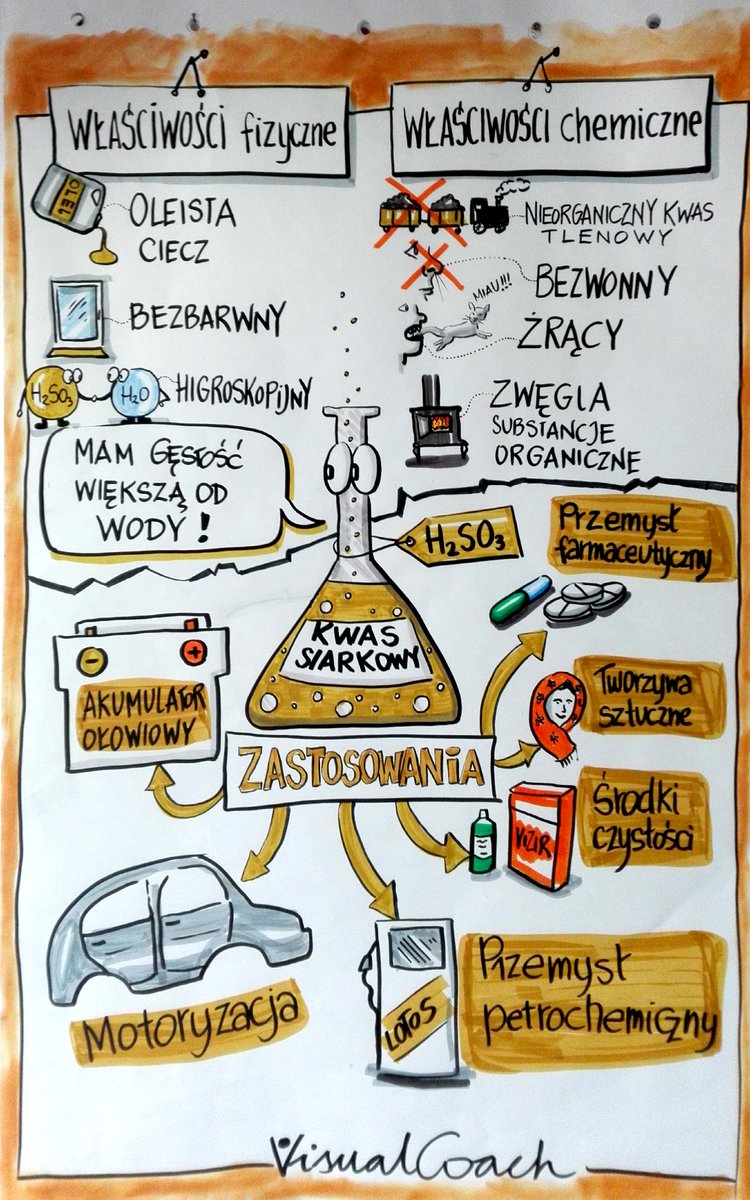 WŁAŚCIWOŚCI fizyczne
OLEJ
OLEISTA
CIECZ
BEZBARWNY
H₂SO₃
H₂O
HIGROSKOPIJNY
MAM GĘSTOŚĆ
WIĘKSZĄ OD
WODY!
WŁAŚCIWOŚCI chemiczne
NIEORGANICZNY KWAS
TLENOWY
BEZWONNY
MIAU!!!
ŻRĄCY
ZWĘGLA
SUBSTANCJE
ORGANICZNE
H₂SO₃
KWAS
SIARKOWY
ZASTOSOWANIA
Przemysł
farmaceutyczny
Tworzywa
sztuczne
Środki
czystości
VIZIR
AKUMULATOR
OŁOWIOWY
Motoryzacja
LOTOS
Przemysł
petrochemiczny
VisualCoach